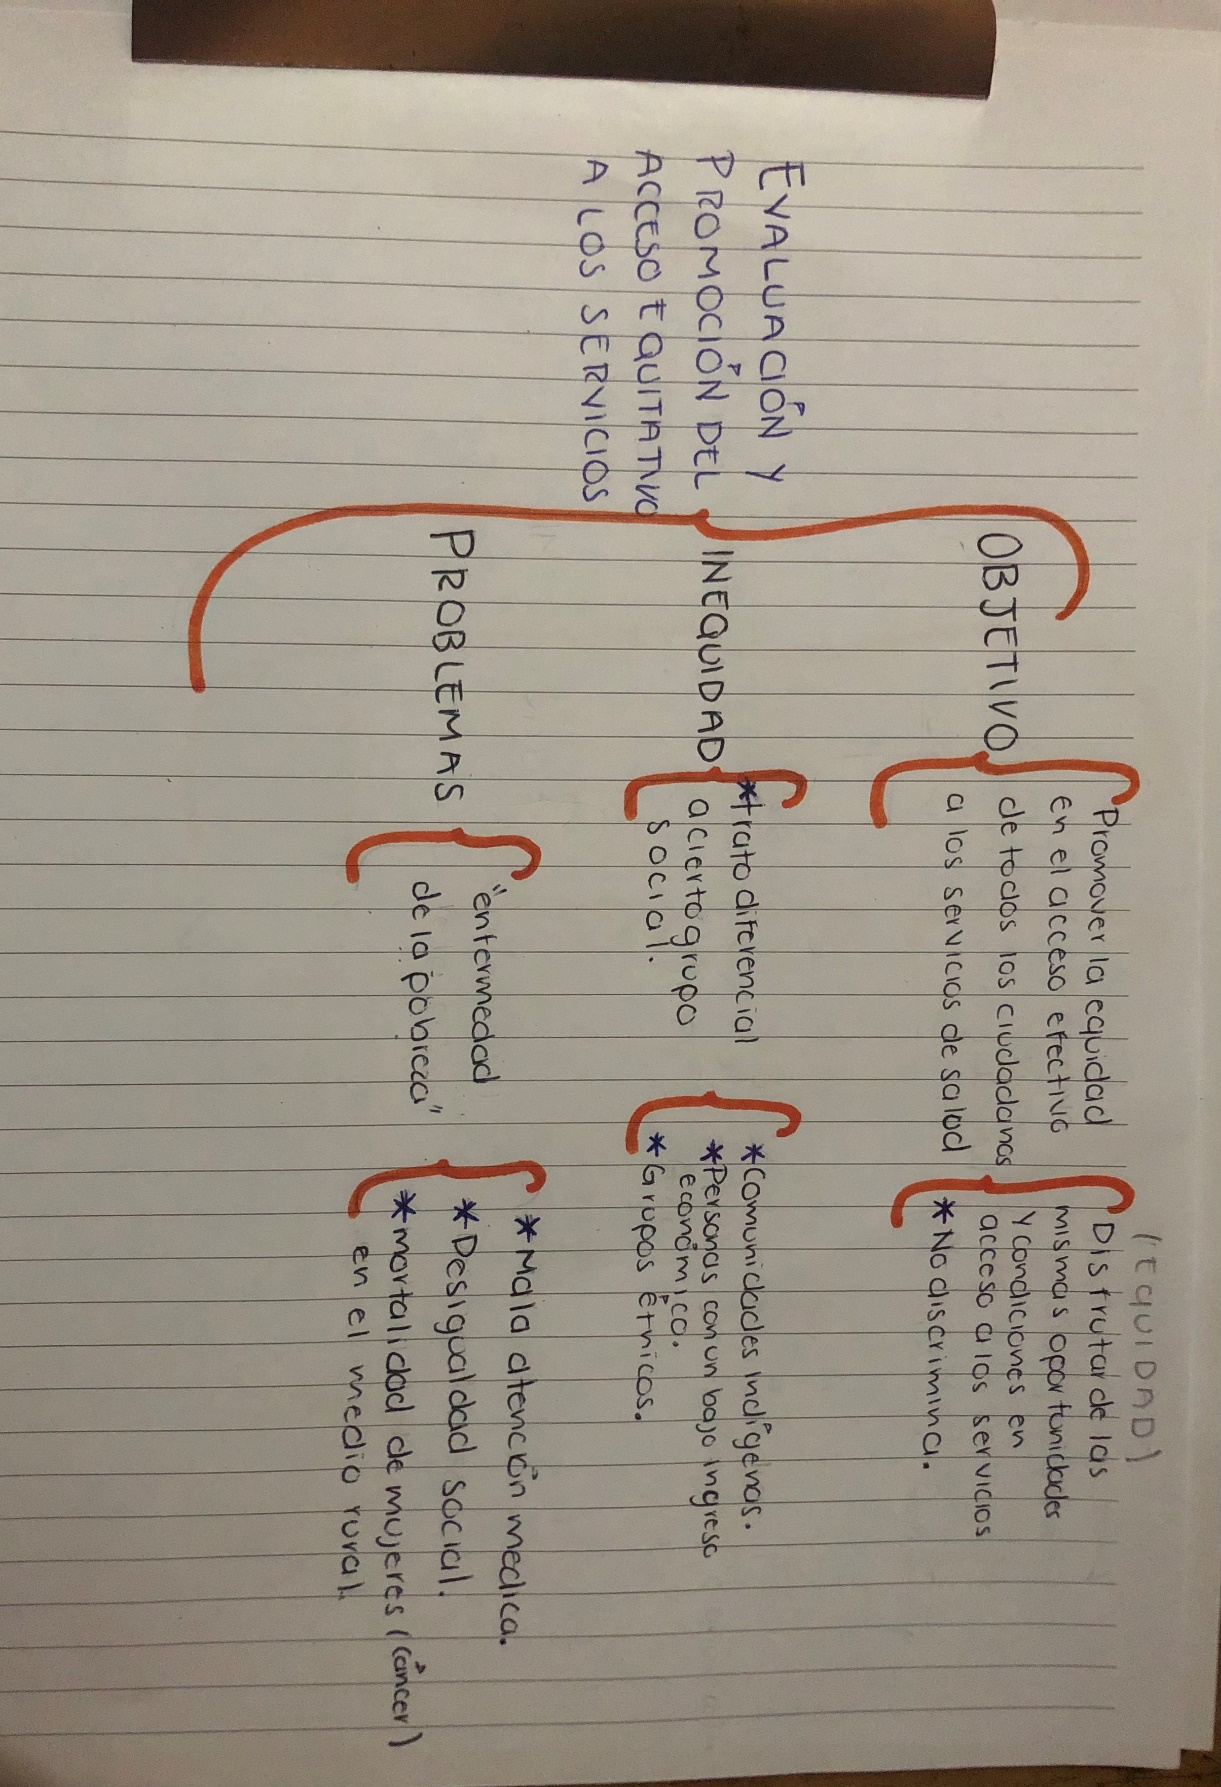 EVALUACIÓN Y
PROMOCIÓN DEL
ACCESO EQUITATIVO
A LOS SERVICIOS
OBJETIVO
Promover la equidad
en el acceso efectivo
de todos los ciudadanos
a los servicios de salud
(EQUIDAD)
Disfrutar de las
mismas oportunidades
y condiciones en
acceso a los servicios
* No discrimina.
INEQUIDAD
* trato diferencial
a cierto grupo
social.
* Comunidades indígenas.
* Personas con un bajo ingreso
económico.
* Grupos étnicos.
PROBLEMAS
"enfermedad
de la pobreza"
* Mala atención medica.
* Desigualdad social.
* mortalidad de mujeres (cáncer)
en el medio rural.